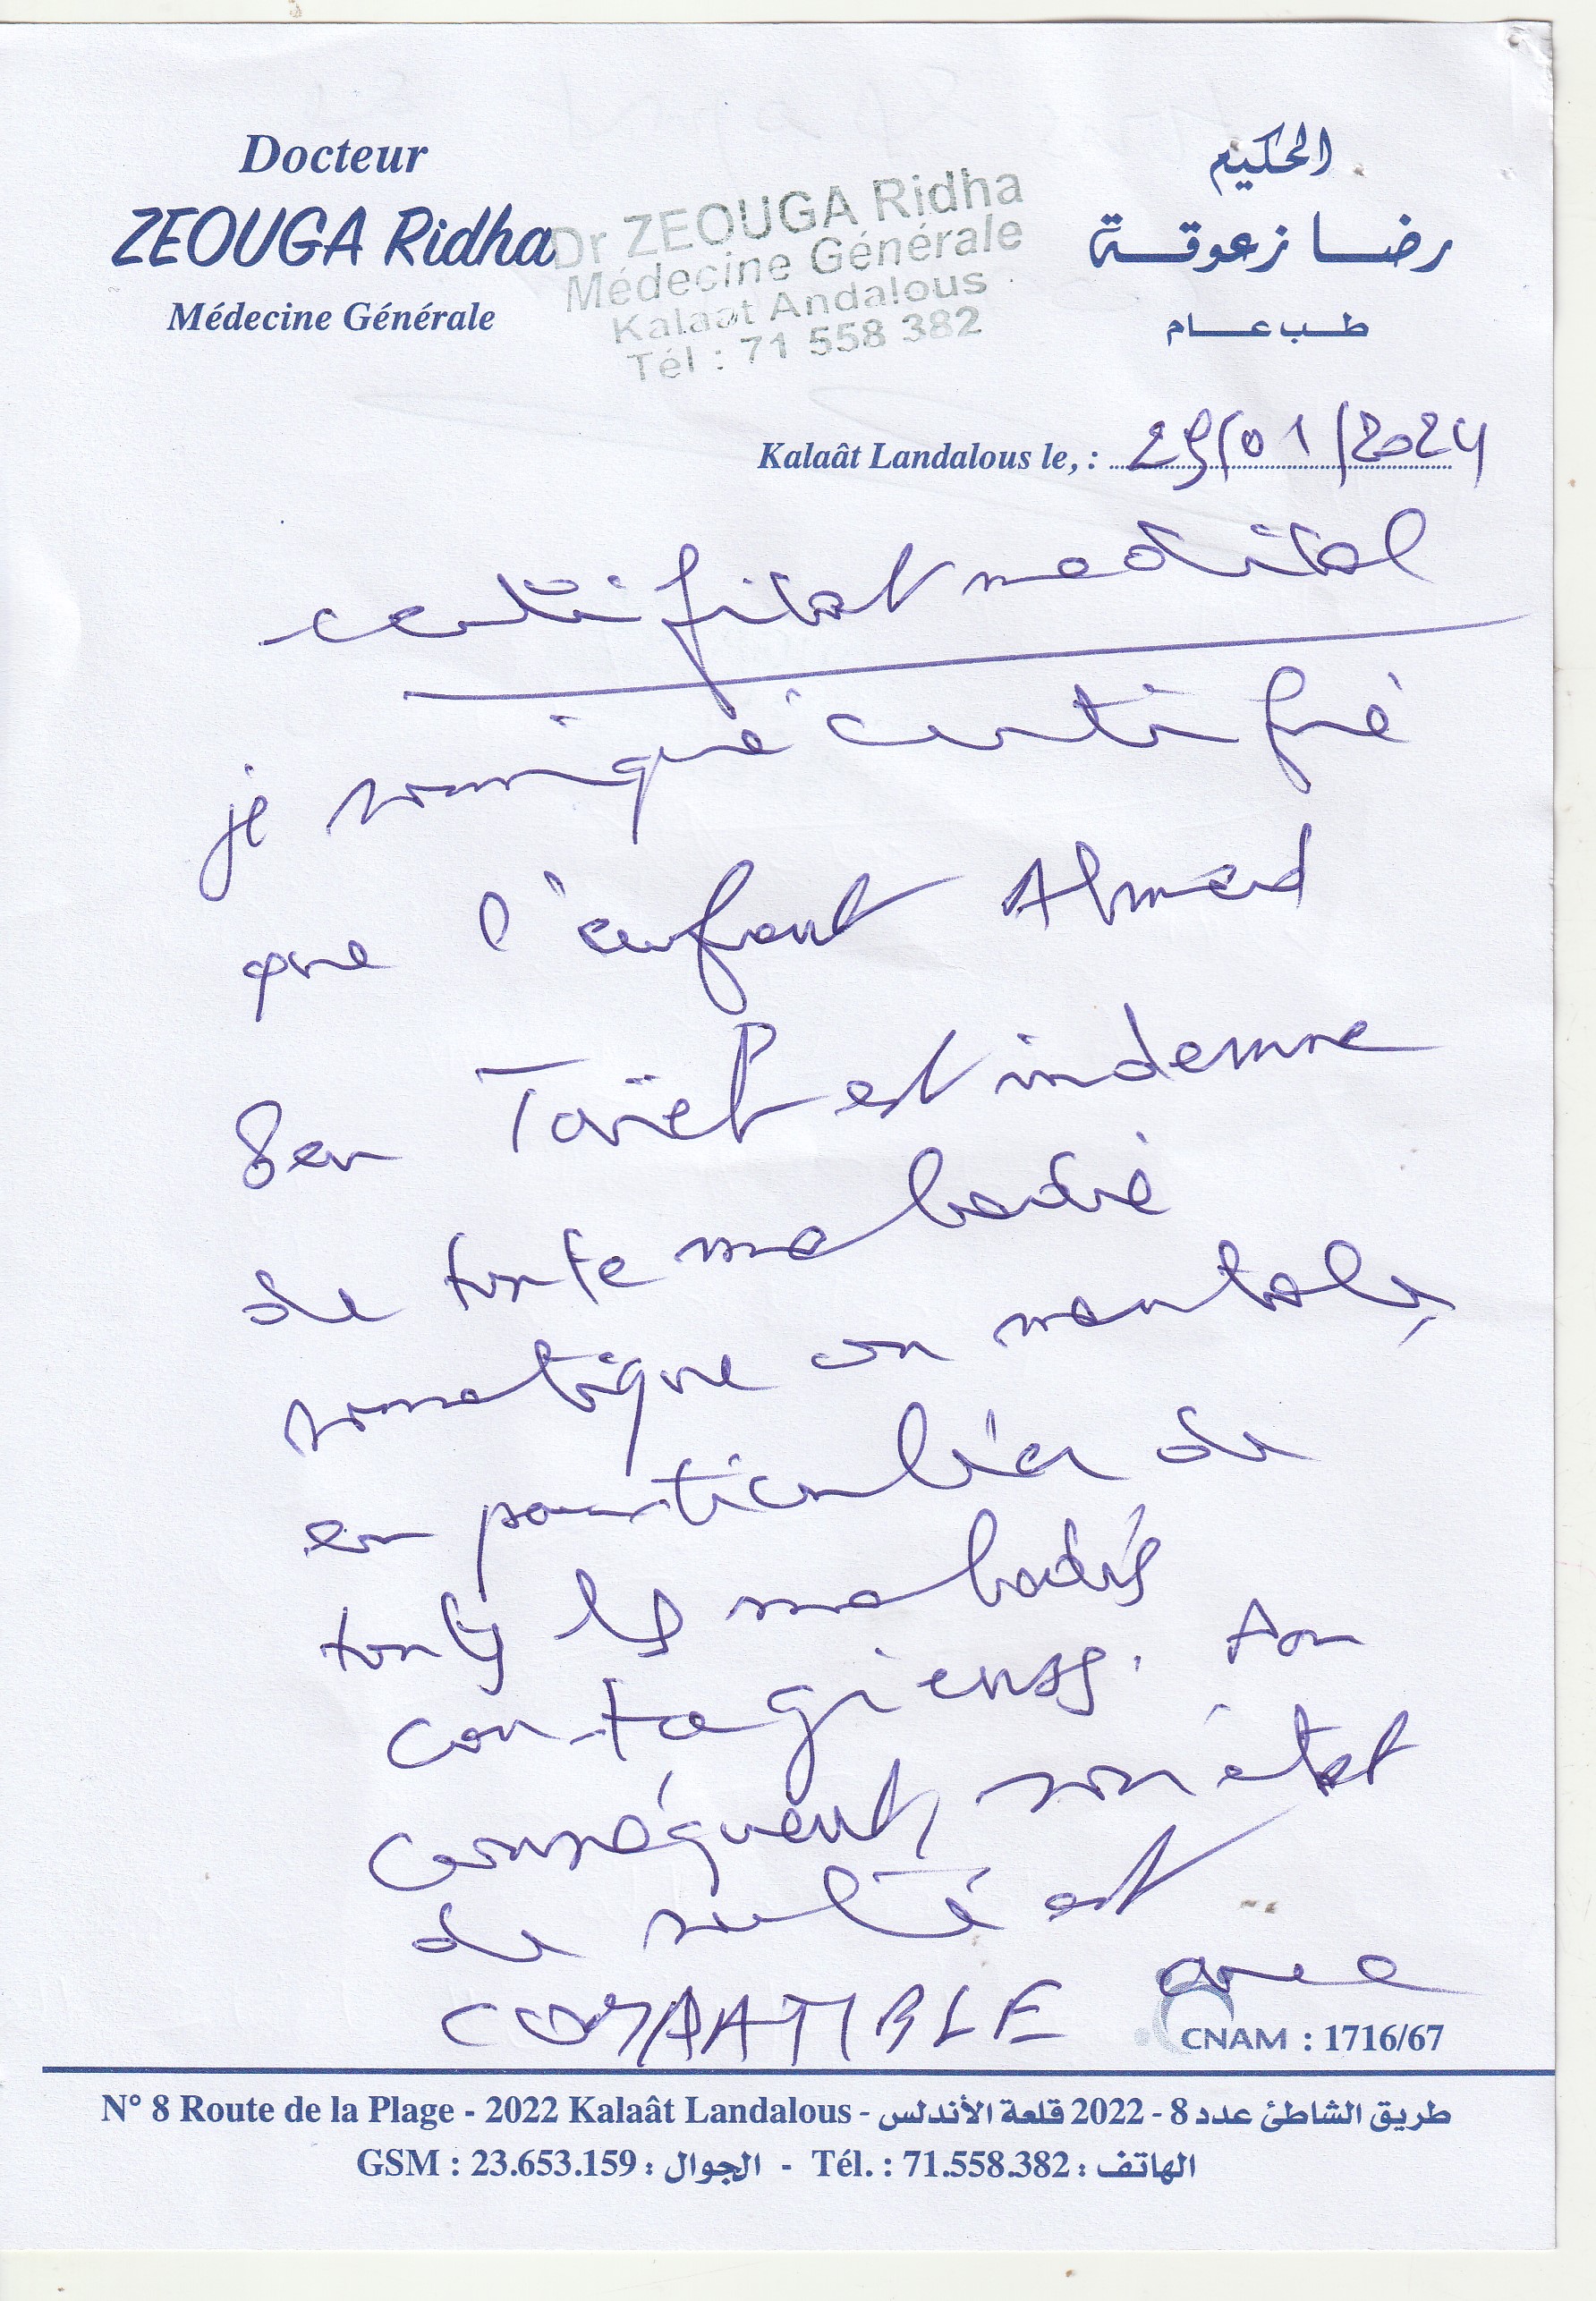 Docteur
ZEOUGA Ridha
Médecine Générale
Dr ZEOUGA Ridha
Médecine Générale
Kalaat Andalous
Tél : 71 558 382
الحكيم
رضا زعوقة
طب عام
Kalaât Landalous le, : 29/01/2024
certificat medical
je soussigné certifie
que l'enfant Ahmed
Ben Taïeb est indemne
de toute maladie
somatique ou mentale,
en particulier de
toutes les maladies
contagieuses. Par
conséquent, son état
de santé est
COMPATIBLE avec
CNAM : 1716/67
N° 8 Route de la Plage - 2022 Kalaât Landalous - طريق الشاطئ عدد 8 - 2022 قلعة الأندلس
GSM : 23.653.159 : الجوال - Tél. : 71.558.382 : الهاتف